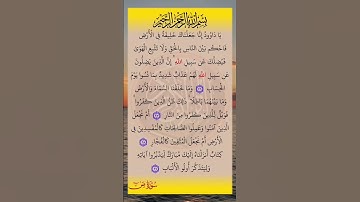 بسم الله الرحمن الرحيم
يَا دَاوُودُ إِنَّا جَعَلْنَاكَ خَلِيفَةً فِي الْأَرْضِ
فَاحْكُم بَيْنَ النَّاسِ بِالْحَقِّ وَلَا تَتَّبِعِ الْهَوَىٰ
فَيُضِلَّكَ عَن سَبِيلِ اللَّهِ ۚ إِنَّ الَّذِينَ يَضِلُّونَ
عَن سَبِيلِ اللَّهِ لَهُمْ عَذَابٌ شَدِيدٌ بِمَا نَسُوا يَوْمَ
الْحِسَابِ وَمَا خَلَقْنَا السَّمَاءَ وَالْأَرْضَ
وَمَا بَيْنَهُمَا بَاطِلًا ۚ ذَٰلِكَ ظَنُّ الَّذِينَ كَفَرُوا ۚ
فَوَيْلٌ لِّلَّذِينَ كَفَرُوا مِنَ النَّارِ أَمْ نَجْعَلُ
الَّذِينَ آمَنُوا وَعَمِلُوا الصَّالِحَاتِ كَالْمُفْسِدِينَ فِي
الْأَرْضِ أَمْ نَجْعَلُ الْمُتَّقِينَ كَالْفُجَّارِ
كِتَابٌ أَنزَلْنَاهُ إِلَيْكَ مُبَارَكٌ لِّيَدَّبَّرُوا آيَاتِهِ
وَلِيَتَذَكَّرَ أُولُو الْأَلْبَابِ
سورة ص